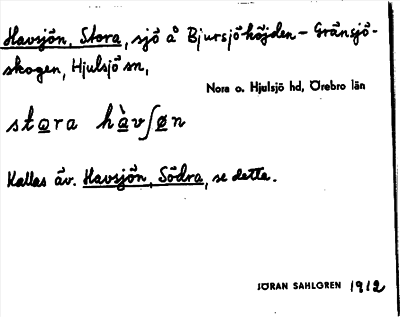 Havsjön, Stora, sjö å Bjursjöhöjden - Gränsjö-
skogen, Hjulsjö sn,
Nora o. Hjulsjö hd, Örebro län
stora hàvʃøn
Kallas äv. Havsjön, Södra, se detta.
JÖRAN SAHLGREN 1912